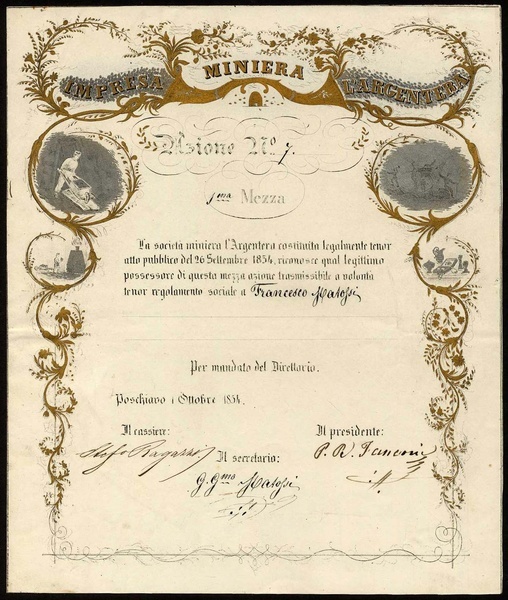 IMPRESA MINIERA L'ARGENTERA
Azione Nº 7.
1ma Mezza
La società miniera l'Argentera costituita legalmente tenor
atto pubblico del 26 Settembre 1854, riconosce qual legittimo
possessore di questa mezza azione trasmissibile a volontà
tenor regolamento sociale a Francesco Matossi
Per mandato del Direttorio.
Poschiavo 1 Ottobre 1854.
Il cassiere:
Il presidente:
Ragazzi
Il secretario:
P. R.
G. Gmo Matossi